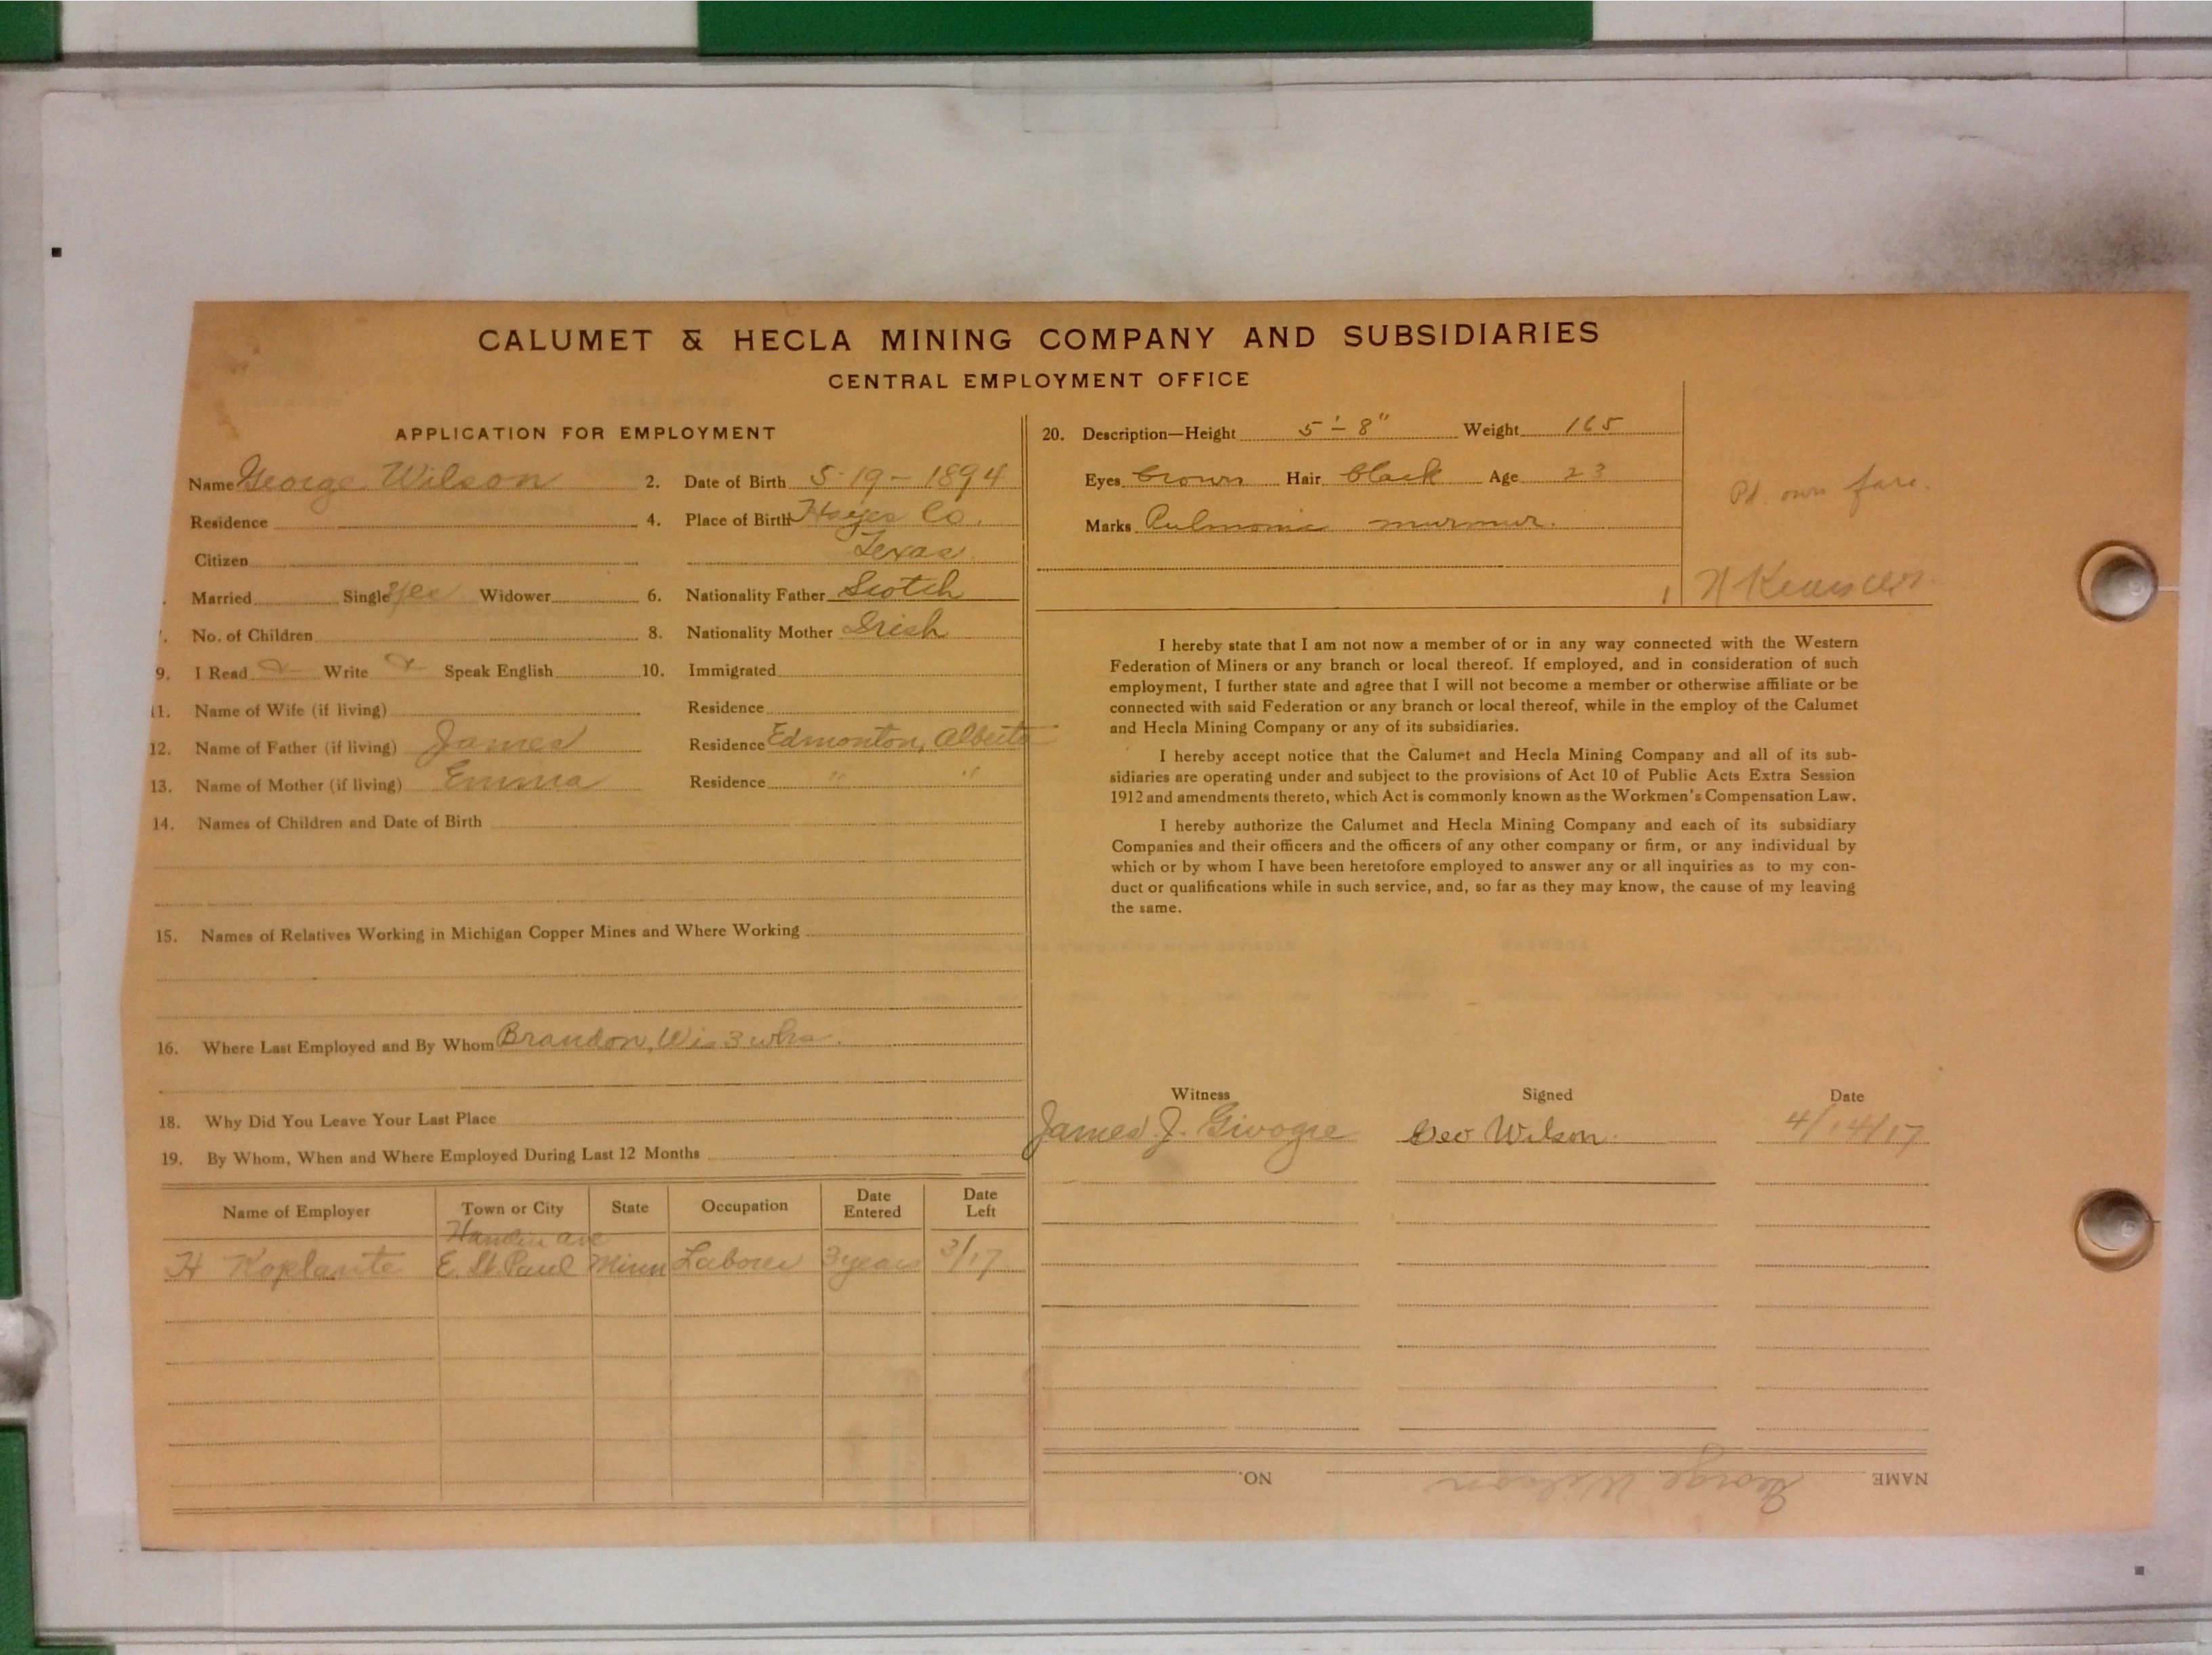 CALUMET & HECLA MINING COMPANY AND SUBSIDIARIES
CENTRAL EMPLOYMENT OFFICE
APPLICATION FOR EMPLOYMENT
Name George Wilson 2. Date of Birth 5-19-1894
Residence 4. Place of Birth Hayes Co.
Citizen Texas
Married Single yes Widower 6. Nationality Father Scotch
No. of Children 8. Nationality Mother Irish
9. I Read Write Speak English 10. Immigrated
11. Name of Wife (if living) Residence
12. Name of Father (if living) James Residence Edmonton, Alberta
13. Name of Mother (if living) Emma Residence " "
14. Names of Children and Date of Birth
15. Names of Relatives Working in Michigan Copper Mines and Where Working
16. Where Last Employed and By Whom Brandon, Wis 3 wks.
18. Why Did You Leave Your Last Place
19. By Whom, When and Where Employed During Last 12 Months
Name of Employer Town or City State Occupation Date Entered Date Left
H Koplante E. St. Paul Minn Laborer 3 years 3/17
20. Description—Height 5'-8" Weight 165
Eyes brown Hair black Age 23
Marks Pulmonic murmur.
Pd. own fare.
I hereby state that I am not now a member of or in any way connected with the Western
Federation of Miners or any branch or local thereof. If employed, and in consideration of such
employment, I further state and agree that I will not become a member or otherwise affiliate or be
connected with said Federation or any branch or local thereof, while in the employ of the Calumet
and Hecla Mining Company or any of its subsidiaries.
I hereby accept notice that the Calumet and Hecla Mining Company and all of its sub-
sidiaries are operating under and subject to the provisions of Act 10 of Public Acts Extra Session
1912 and amendments thereto, which Act is commonly known as the Workmen's Compensation Law.
I hereby authorize the Calumet and Hecla Mining Company and each of its subsidiary
Companies and their officers and the officers of any other company or firm, or any individual by
which or by whom I have been heretofore employed to answer any or all inquiries as to my con-
duct or qualifications while in such service, and, so far as they may know, the cause of my leaving
the same.
Witness Signed Date
James J. Geo Wilson. 4/14/17
NAME George Wilson NO.